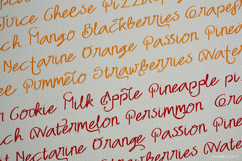 Juice Cheese Pizza
ch Mango Blackberries Grapefr
Nectarine Orange Passion Pinea
ee Pummelo Strawberries Water
r Cookie Milk Apple Pineapple pi
ach Watermelon Persimmon Gra
t Nectarine Orange Passion Pine
Strawberries Wat